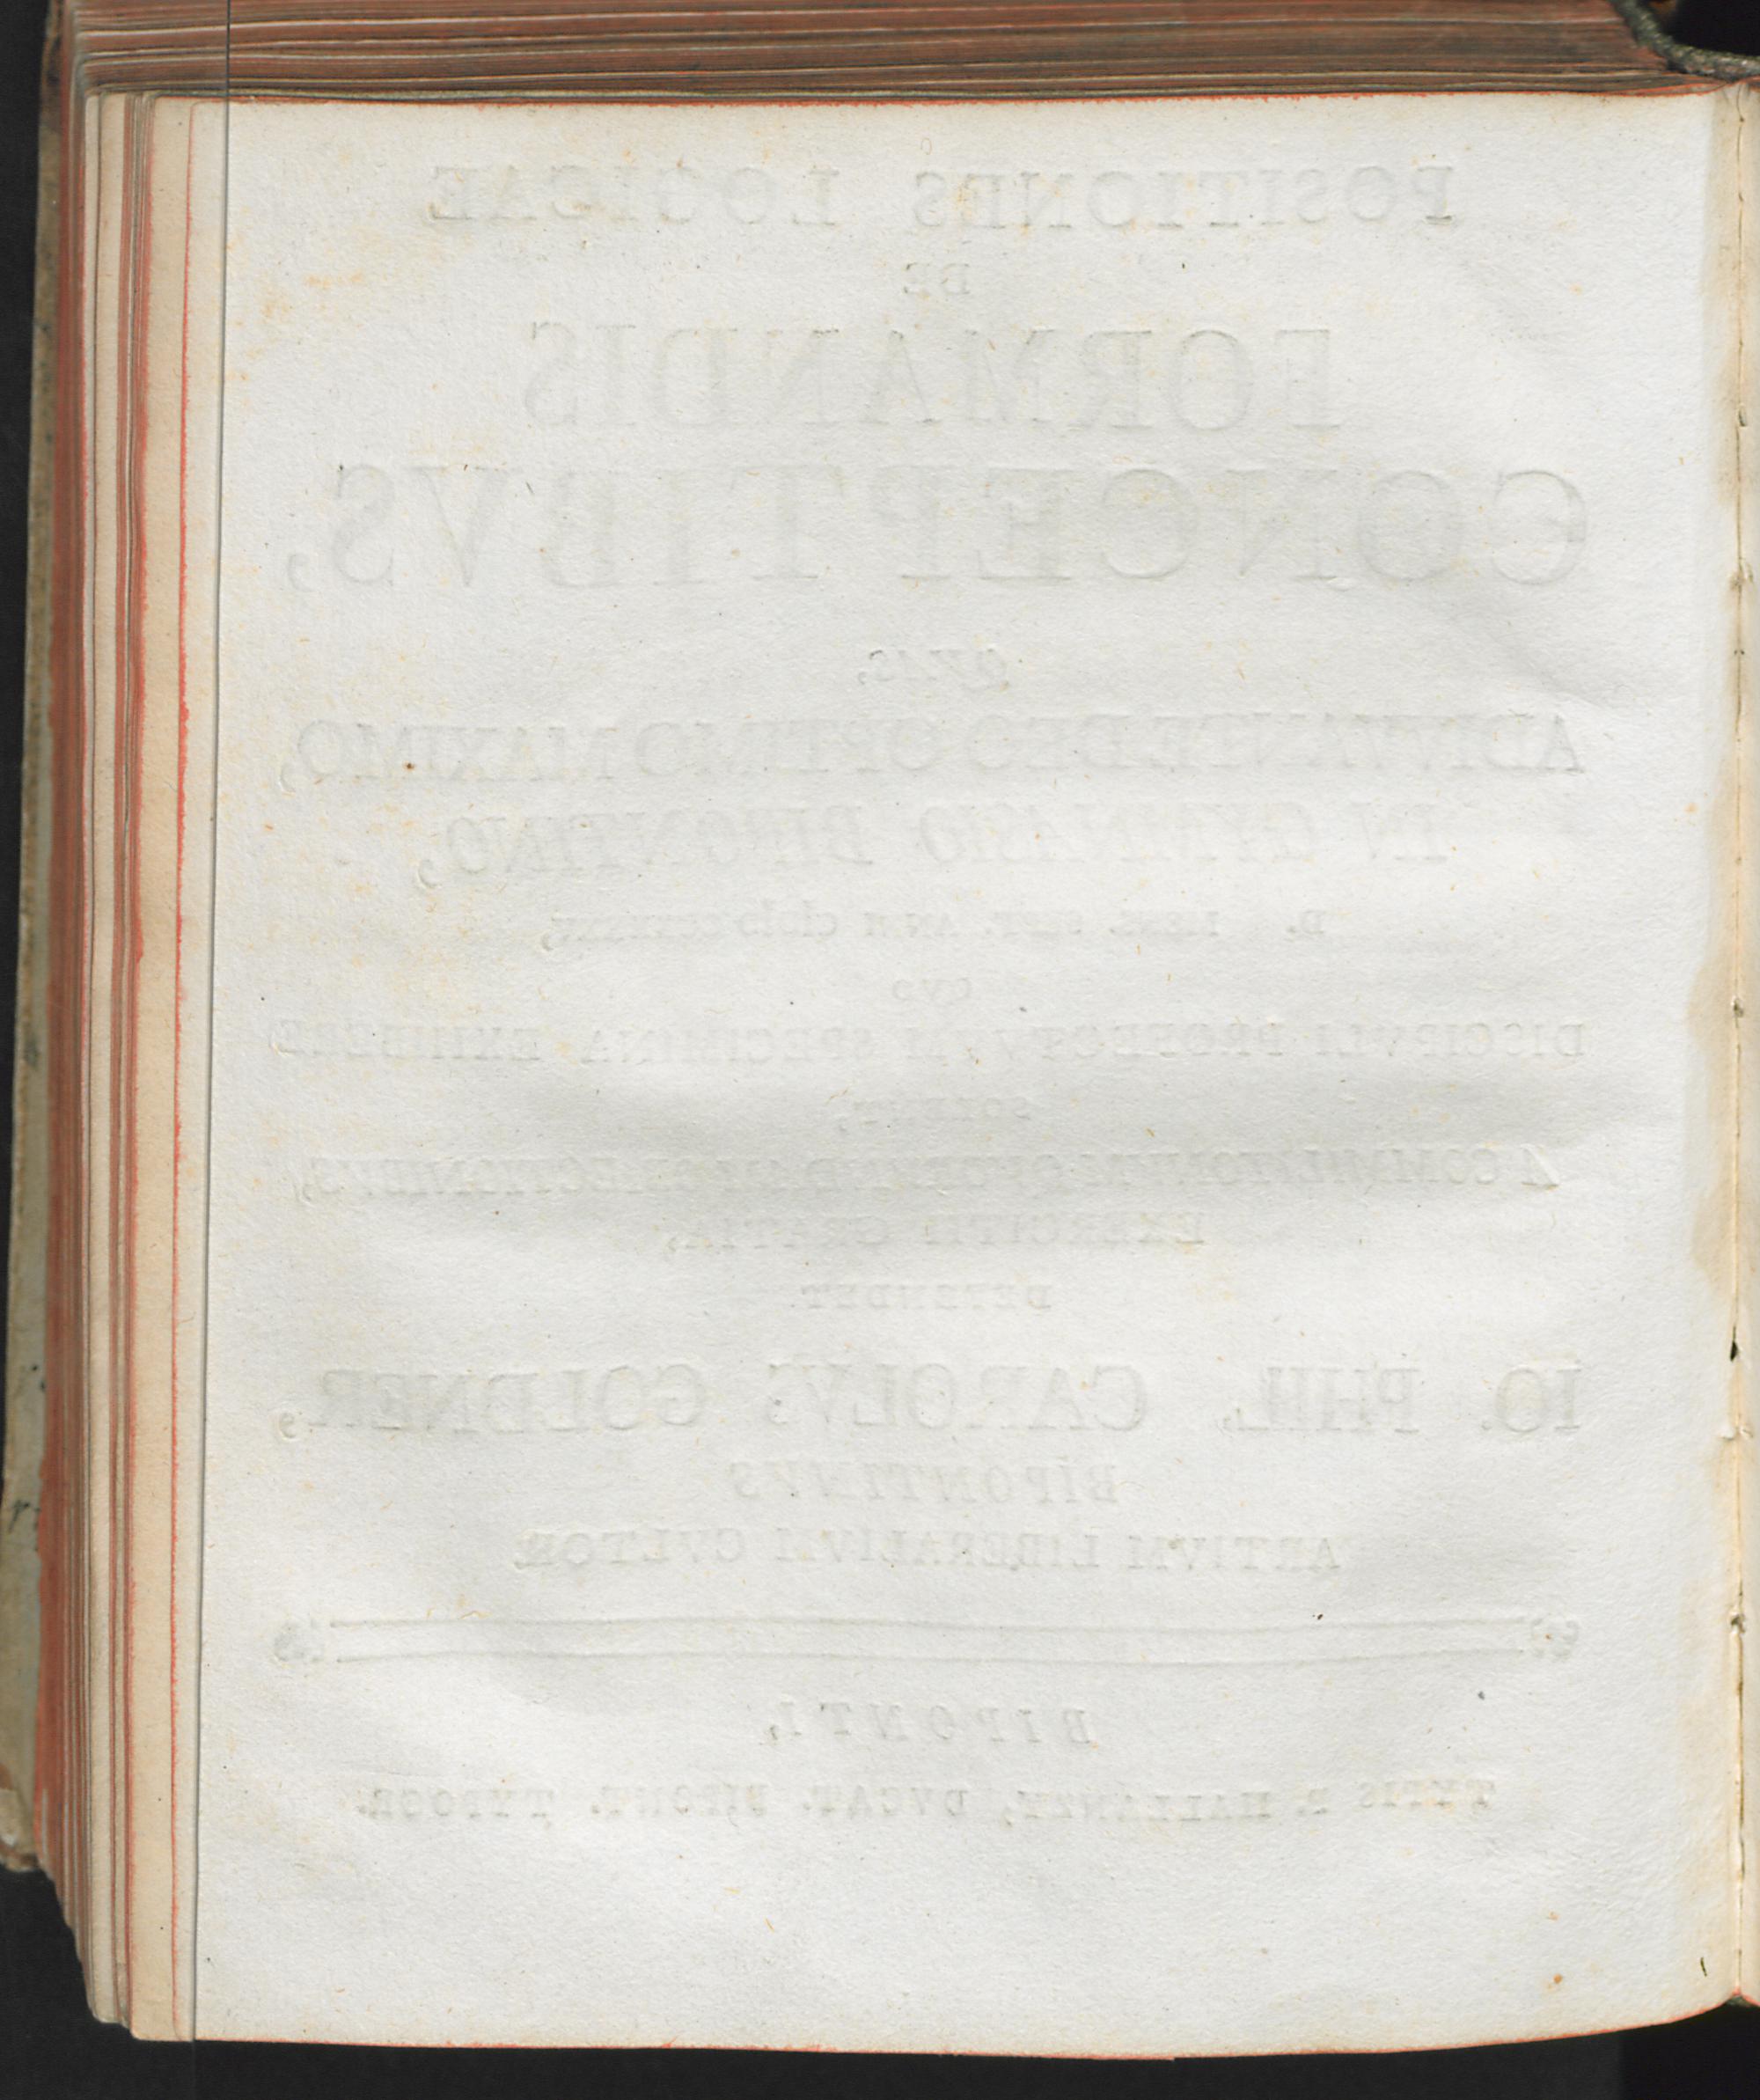 POSITIONES LOGICAE
DE
FORMANDIS
CONCEPTIBVS,
QVAS,
ADIVVANTE DEO OPTIMO MAXIMO,
IN GYMNASIO BIPONTINO,
D. MENS. SEPT. AN.
QVO
DISCIPVLI PROFECTVVM SPECIMINA EXHIBERE
SOLENT,
A COMMILITONVM
EXERCITII GRATIA,
DEFENDET
IO. PHIL. CAROLVS GOLDNER,
BIPONTINVS
ARTIVM LIBERALIVM CVLTOR
BIPONTI,
TYPIS P. HALLANZY, DVCAT. BIPONT. TYPOGR.